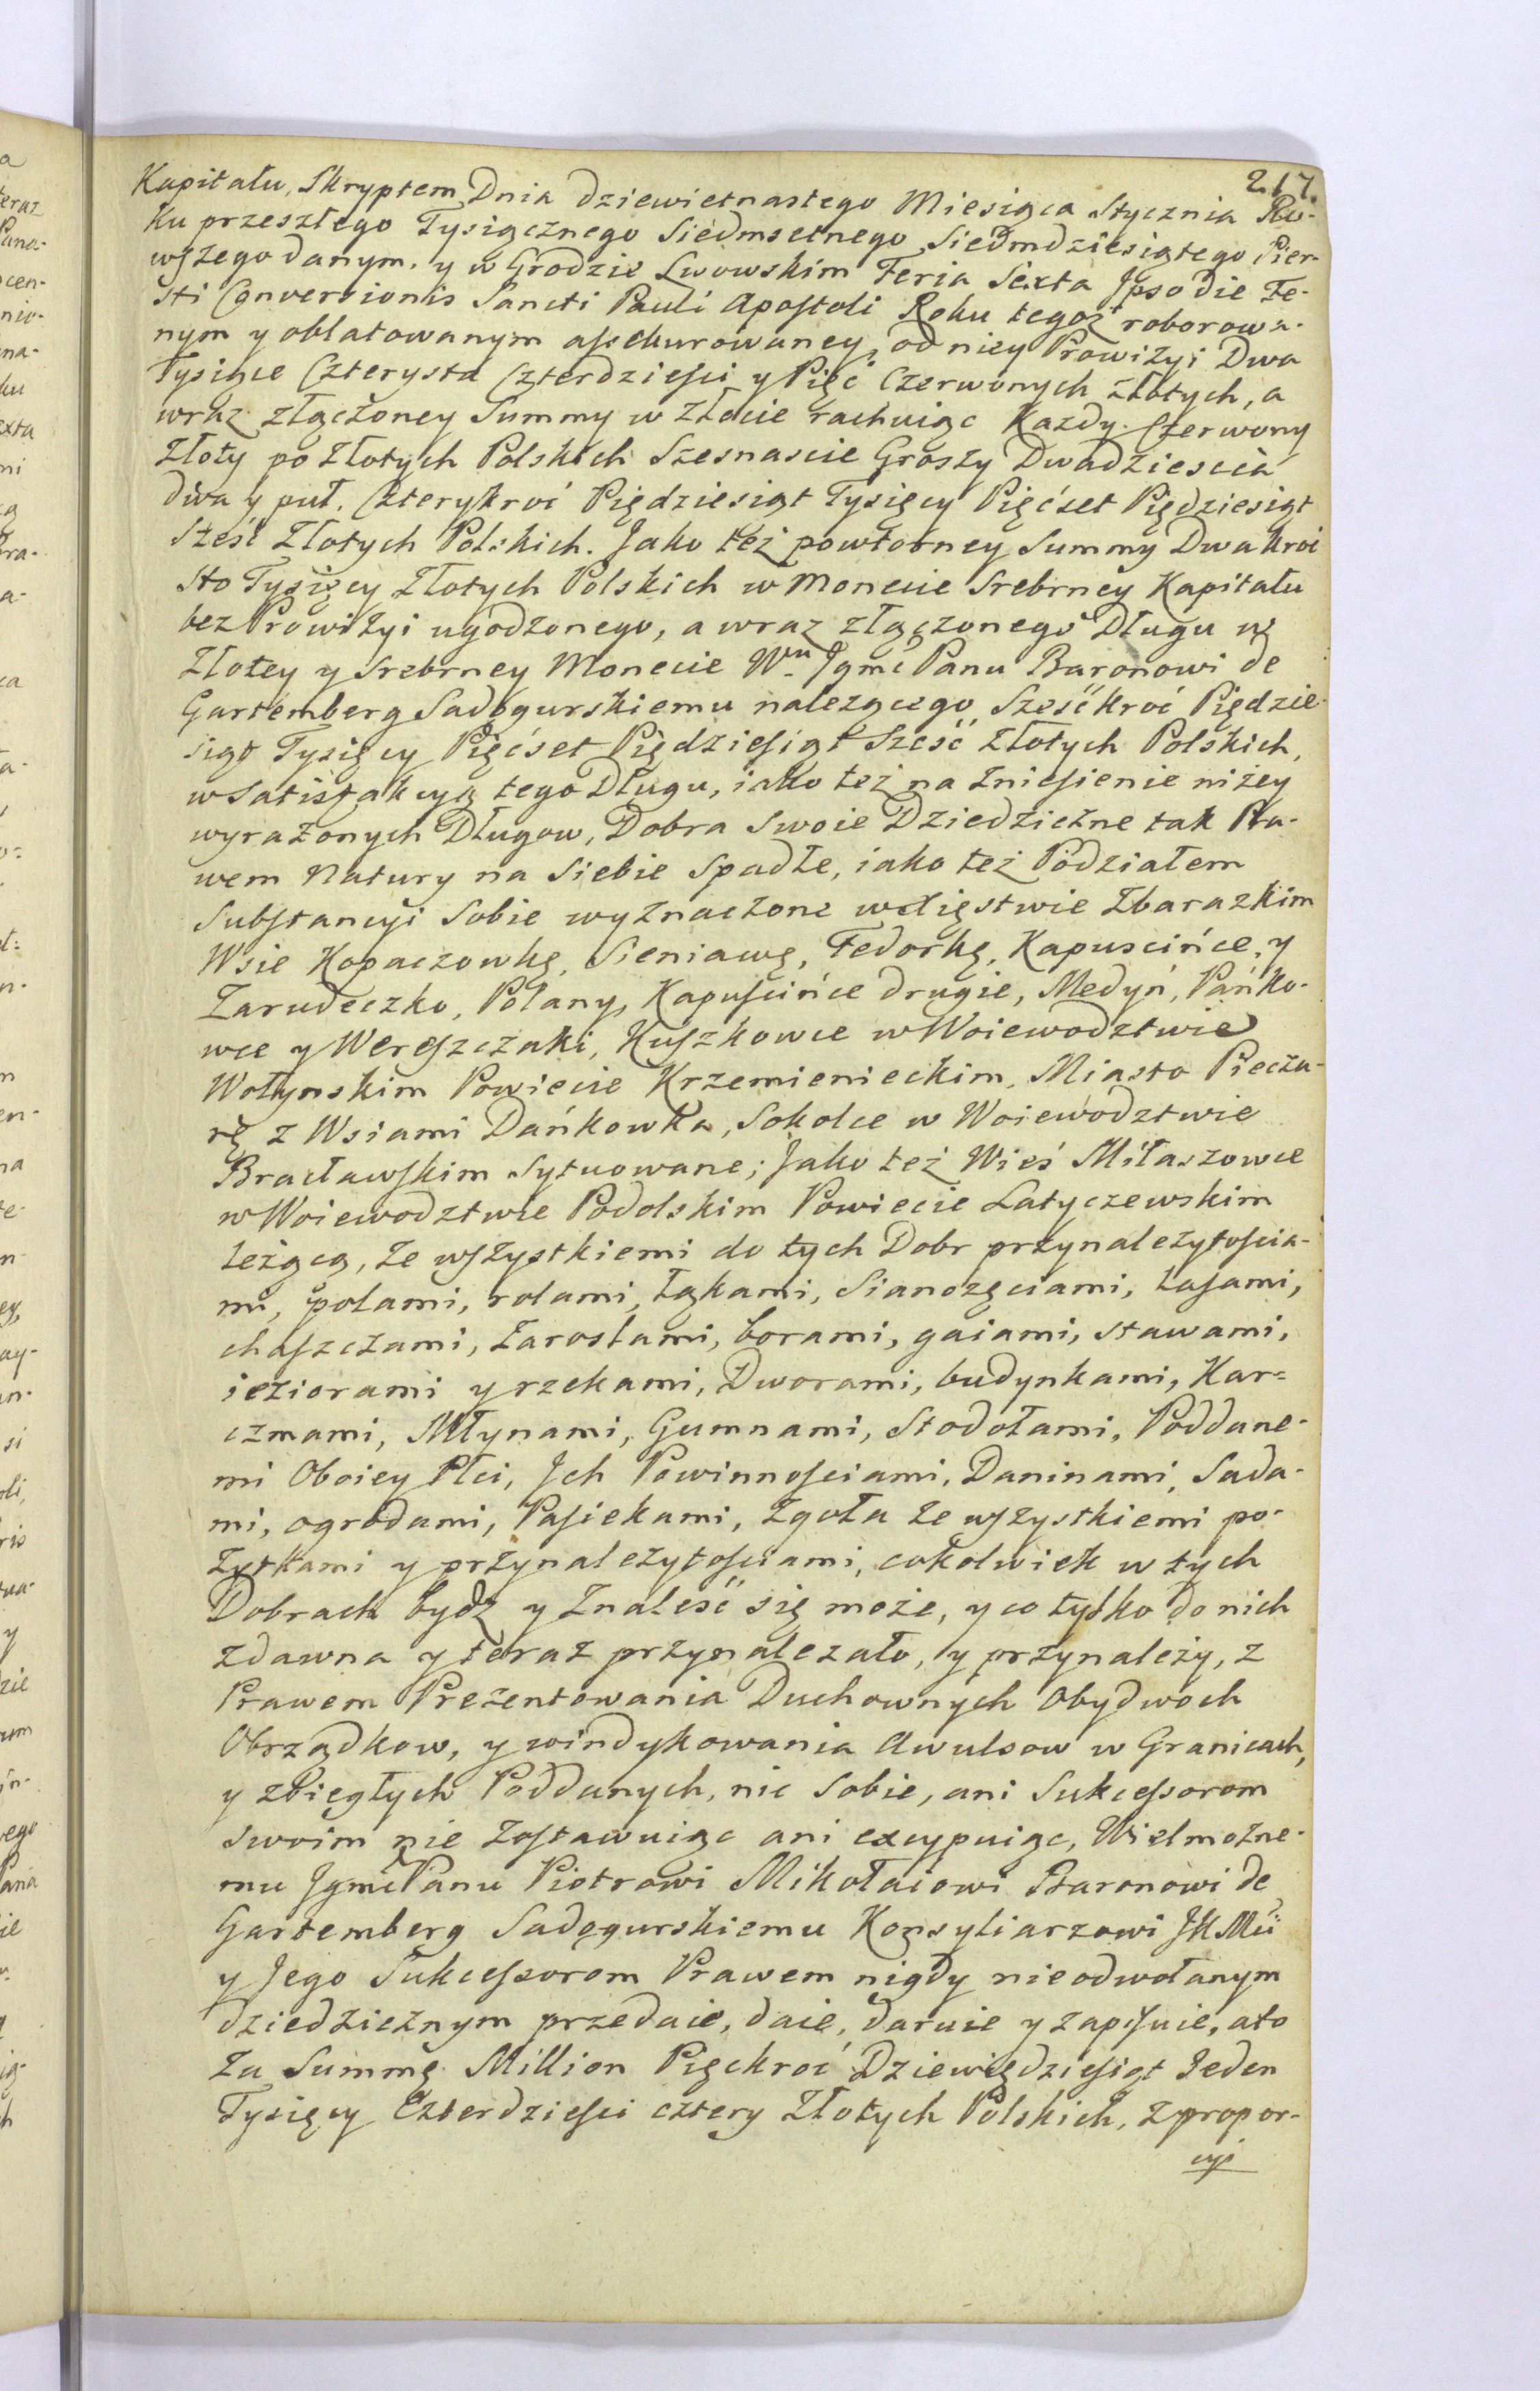 217.
Kapitału, Skryptem Dnia dziewietnastego Miesiąca Stycznia Ro-
ku przeszłego Tysiącznego Siedmsetnego Siedmdziesiątego Pier-
wszego danym, y w Grodzie Lwowskim Feria Sexta Ipso die Fe-
sti Conversionis Sancti Pauli Apostoli Roku tegoż roborowa-
nym y oblatowanym assekurowaney, od niey Prowizyi Dwa
Tysiące Czterysta Czterdziesci y Pięć Czerwonych złotych, a
wraz złączoney Summy w Złocie rachuiąc Kazdy Czerwony
Złoty po Złotych Polskich Szesnascie Groszy Dwadziescia
dwa y puł, Czterykroć Piędziesiąt Tysięcy Pięćset Piędziesiąt
Sześć Złotych Polskich. Jako też powtorney Summy Dwakroć
Sto Tysięcy Złotych Polskich w Monecie Srebrney Kapitału
bez Prowizyi ugodzonego, a wraz złączonego Długu w
Złotey y Srebrney Monecie Wu Jgmć Panu Baronowi de
Gartemberg Sadogurskiemu nalezącego Sześćkroć Piędzie-
siąt Tysięcy Pięćset Piędziesiąt Sześć Złotych Polskich,
w Satisfakcyą tego Długu, iako też na Zniesienie niżey
wyrażonych Długow, Dobra Swoie Dziedziczne tak Pra-
wem Natury na Siebie Spadłe, iako też Podziałem
Substancyi Sobie wyznaczone w Xięstwie Zbarazkim
Wsie Kopaczowkę, Sieniawę, Fedorkę, Kapuscińce, y
Zarudeczko, Polany, Kapuścińce drugie, Medyń, Pańko-
wce y Wereszczaki, Kuszkowce w Woiewodztwie
Wołynskim Powiecie Krzemienieckim, Miasto Piecza-
rę z Wsiami Dańkowka, Sokolce w Woiewodztwie
Bracławskim Sytuowane; Jako też Wieś Miłaszowce
w Woiewodztwie Podolskim Powiecie Latyczewskim
leżącą, ze wszystkiemi do tych Dobr przynależytościa-
mi, polami, rolami, łąkami, Sianozęciami, lasami,
chaszczami, Zaroslami, borami, gaiami, stawami,
ieziorami y rzekami, Dworami, budynkami, Kar=
czmami, Młynami, Gumnami, Stodołami, Poddane-
mi Oboiey Płci, Jch Powinnościami, Daninami, Sada-
mi, ogrodami, Pasiekami, Zgoła ze wszystkiemi po-
żytkami y przynależytościami, cokolwiek w tych
Dobrach bydź y Znaleść się może, y co tylko do nich
zdawna y teraz przynalezało, y przynależy, z
Prawem Prezentowania Duchownych Obydwoch
Obrządkow, y windykowania Awulsow w Granicach,
y zbiegłych Poddanych, nic Sobie, ani Sukcessorom
swoim nie Zostawuiąc ani excypuiąc, Wielmożne-
mu Jgmć Panu Piotrowi Mikołaiowi Baronowi de
Gartemberg Sadogurskiemu Konsyliarzowi JKMći
y Jego Sukcessorom Prawem nigdy nieodwołanym
dziedzicznym przedaie, daie, daruie y zapisuie, a to
Za Summę Million Pięckroć Dziewiędziesiąt Jeden
Tysięcy Czterdziesci cztery Złotych Polskich, z propor-
cyi